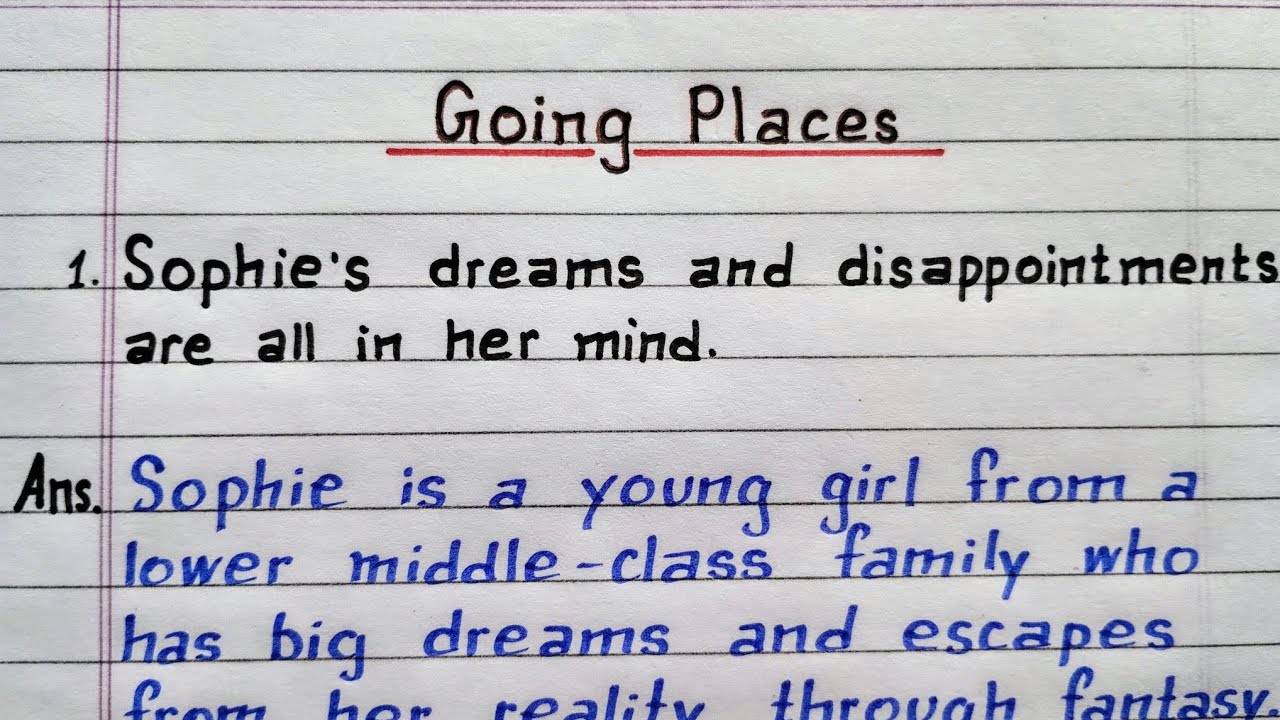 Going Places
1. Sophie's dreams and disappointments
are all in her mind.
Ans. Sophie is a young girl from a
lower middle-class family who
has big dreams and escapes
from her reality through fantasy.